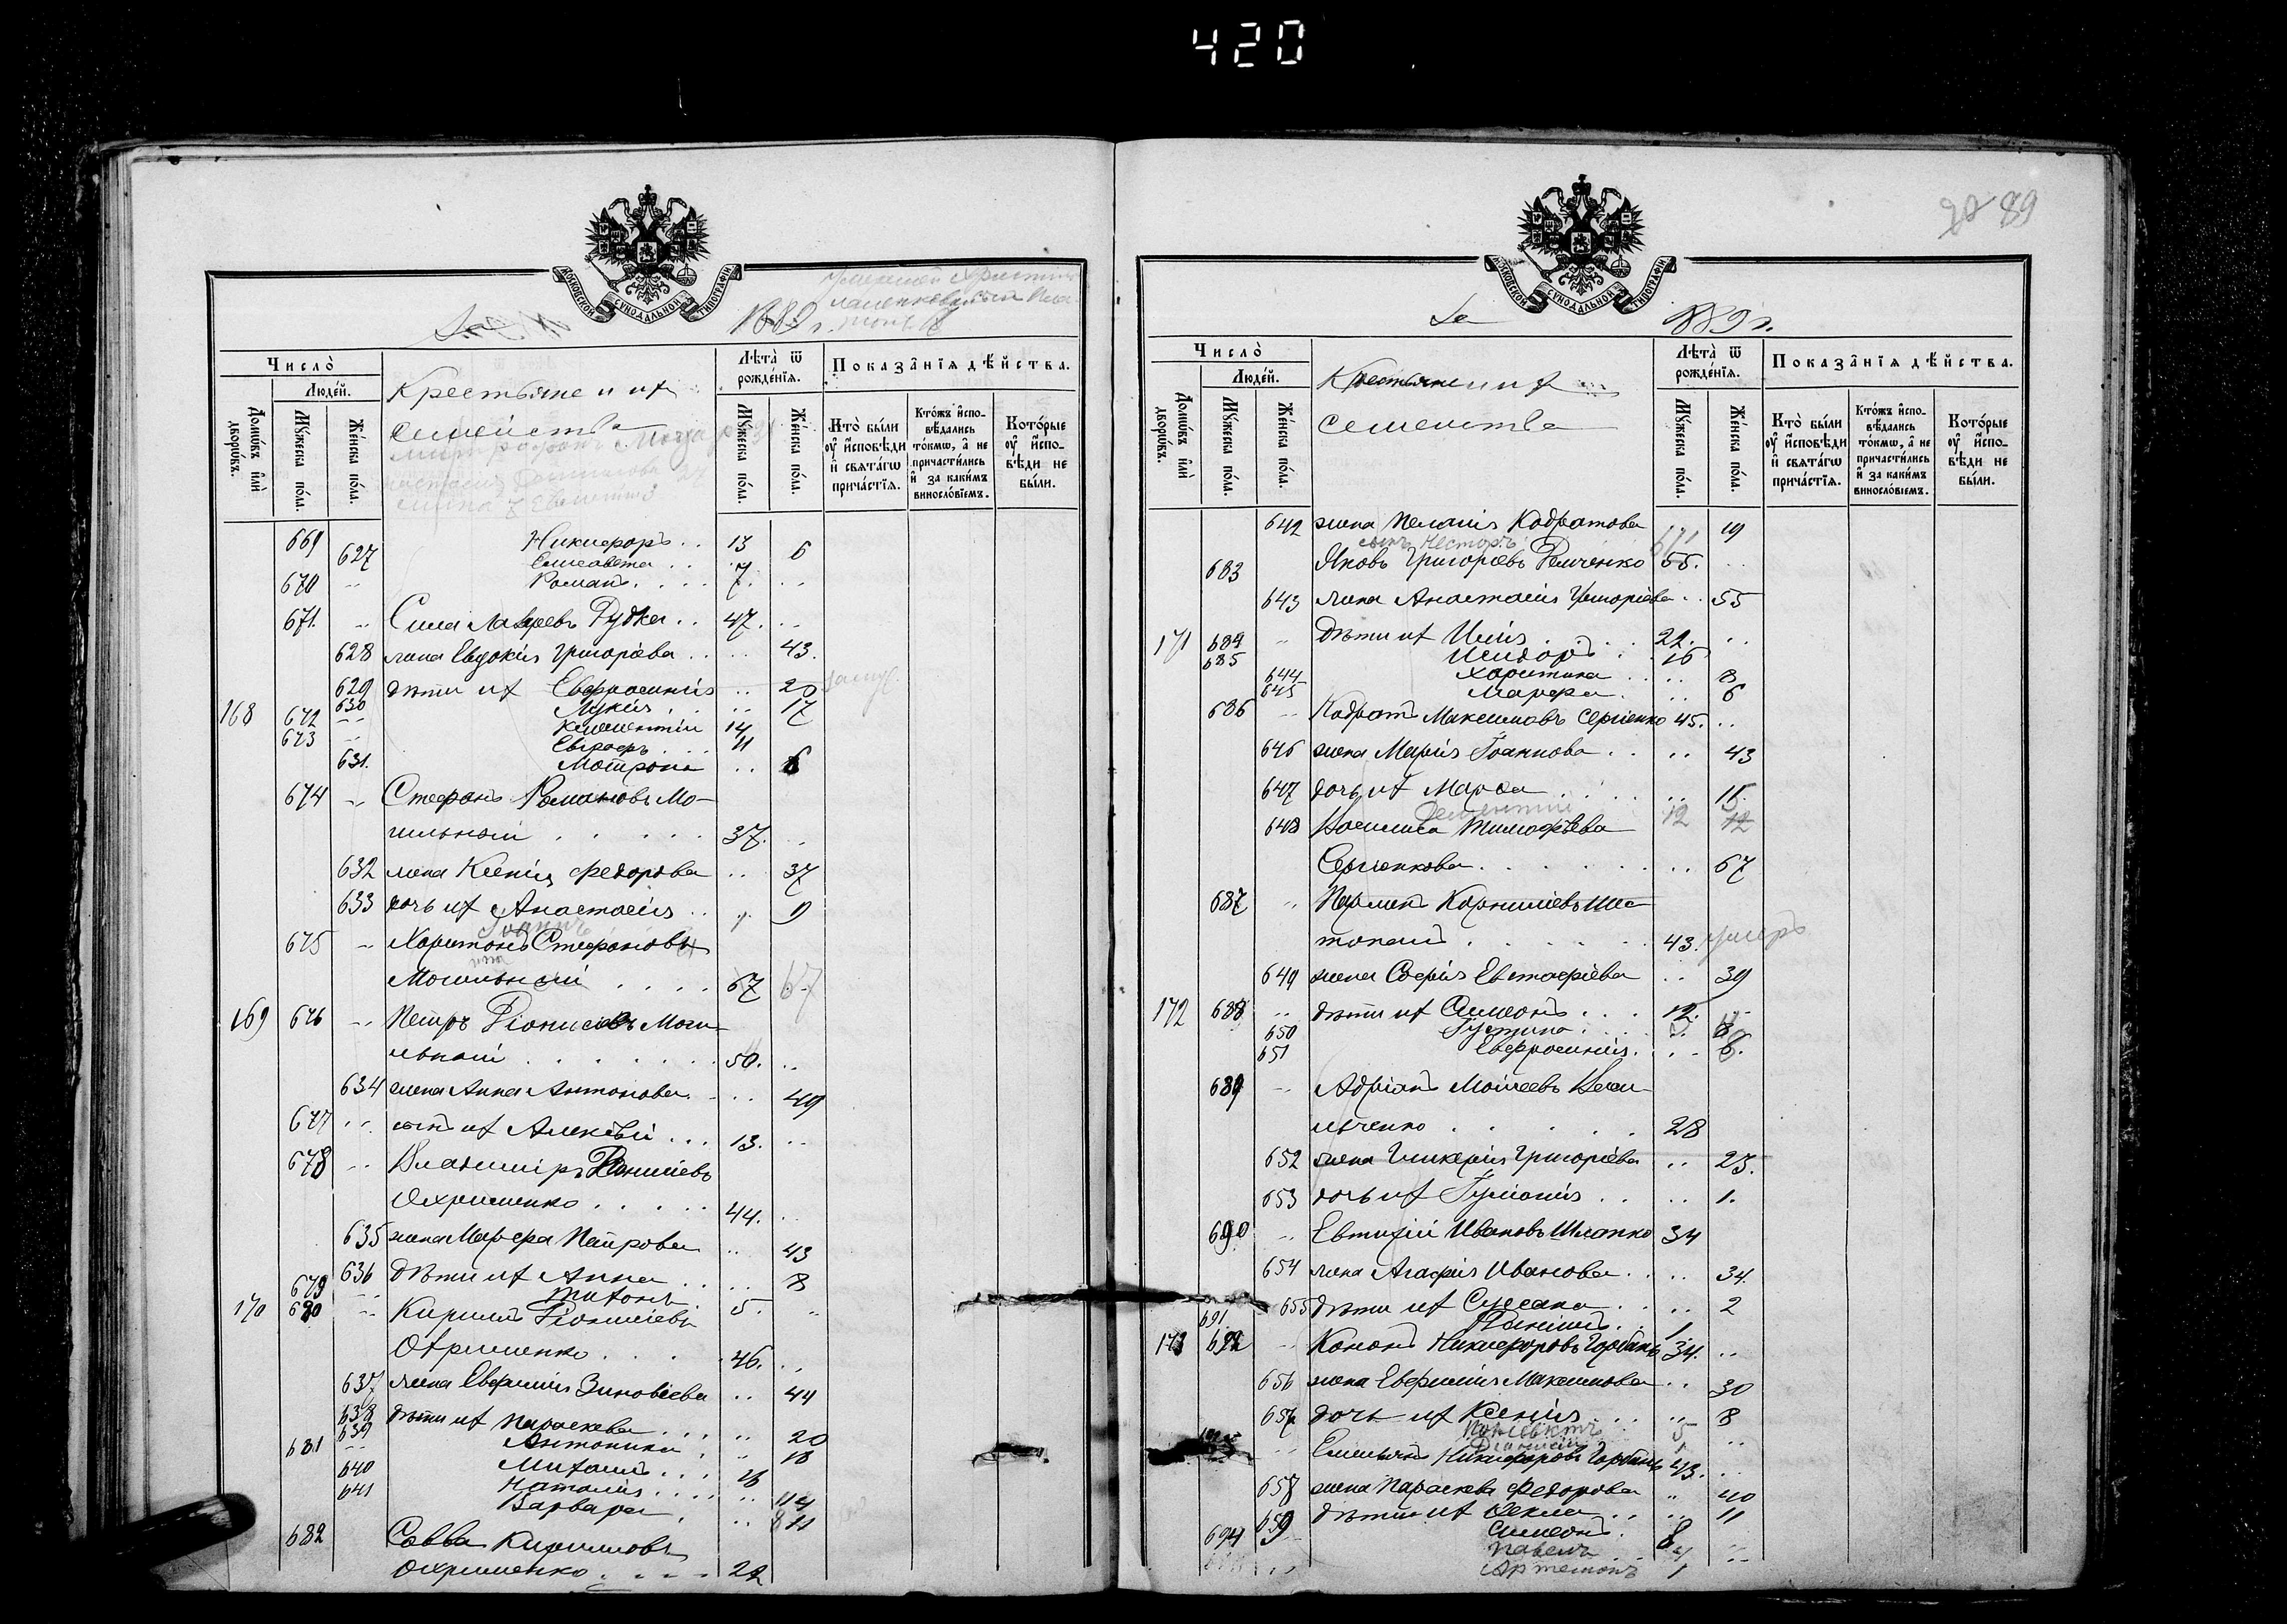 420
МОСКОВСКОЙ СѴНОДАЛЬНОЙ ТИПОГРАФІИ
1889 г.
Число̀
Люде́й.
Домѡ́въ и҆лѝ дворѡ́въ.
Мꙋ́жеска по́ла.
Же́нска по́ла.
Крестьяне и их
семейства
Лѣта̀ ѿ рожде́нїѧ.
Мꙋ́жеска по́ла.
Же́нска по́ла.
Показа̂нїѧ дѣ́йства.
Кто̀ бы́ли ᲂу҆ и҆сповѣди и҆ свѧта́гѡ прича́стїѧ.
Кто́жъ и҆спо-вѣдались то́кмѡ, а҆ не причасти́лись и҆ за каки́мъ винослові́емъ.
Кото́рые ᲂу҆ и҆спо-вѣди не бы́ли.
669 Никифоръ . . 13
627 Елисавета . . 6
670 Романъ . . . . 7.
671. Сила Лавровъ Рудка . . 47.
628 жена Евдокія Григоріева . . 43.
629 дѣти их Евфросинія . . 20
630 Лукія . . . 17
168 672 Климентій 14
673 Евграфъ . . . 11
631. Матрона . . 6
674 Стефанъ Романовъ Мо-
гильный . . . . . 37.
632 жена Ксенія Федорова . . 37
633 дочь их Анастасія . . 9
Іоаннъ
675 Харитонъ Стефановъ
Могильный . . . . 67 67
169 676 Петръ Діонисіевъ Моги-
льный . . . . . . . 50.
634 жена Анна Антонова . . 49
677 сынъ их Алексѣй . . . 13.
678 Владиміръ Діонисіевъ
Охрименко . . . . . 44.
635 жена Марфа Петрова . . 43
636 дѣти их Анна . . . 8
679 Титонъ . 5.
170 680 Кирилъ Діонисіевъ
Охрименко . . . . 46.
637 жена Евфимія Зиновіева . . 44
638 дѣти их Параскева . . . 20
639 Антонина . 18
681 Михаилъ . . . 16
640 Наталія . . . 14
641 Варвара . . 11
682 Савва Кирилловъ
Охрименко . . . . 22
89
За 1889 г.
МОСКОВСКОЙ СѴНОДАЛЬНОЙ ТИПОГРАФІИ
Число̀
Люде́й.
Домѡ́въ и҆лѝ дворѡ́въ.
Мꙋ́жеска по́ла.
Же́нска по́ла.
Крестьяне и их
семейства
Лѣта̀ ѿ рожде́нїѧ.
Мꙋ́жеска по́ла.
Же́нска по́ла.
Показа̂нїѧ дѣ́йства.
Кто̀ бы́ли ᲂу҆ и҆сповѣди и҆ свѧта́гѡ прича́стїѧ.
Кто́жъ и҆спо-вѣдались то́кмѡ, а҆ не причасти́лись и҆ за каки́мъ винослові́емъ.
Кото́рые ᲂу҆ и҆спо-вѣди не бы́ли.
642 жена Пелагія Кодратова 19
сынъ Несторъ
683 Яковъ Григоріевъ Демченко 55.
643 жена Анастасія Григоріева . . 55
171 684 дѣти их Илія . . . 22.
685 Исидоръ . . 16
644 Харитина . . 8
645 Марфа . . . 6
686 Кодратъ Максимовъ Сергіенко 45.
646 жена Марія Іоаннова . . 43
647 дочь их Марфа . . . . 15.
Дементій 12
648 Василиса Тимофѣева
Сергіенкова . . . . . . 67
687 Парменъ Корниліевъ Ша-
топалъ . . . . . . 43. умеръ
649 жена Софія Евстафіева . . 39
172 688 дѣти их Симеонъ . . . 12.
650 Іустина . . . . 8
651 Евфросинія . . . 6.
689 Адріанъ Моисеевъ Васи-
льченко . . . . . . 28
652 жена Гликерія Григоріева . . 23.
653 дочь их Іуліанія . . . 1.
690 Евтихій Ивановъ Шляпко 34
654 жена Агафія Иванова . . 34.
655 дѣти их Сусана . . . 2
691 Даніилъ . . 1
173 692 Кононъ Никифоровъ Горбань 34.
656 жена Евфимія Максимова . . 30
657 дочь их Ксенія . . . 8
Поліевктъ 5
Діонисій 1
Емельянъ Никифоровъ Горбань 43.
658 жена Параскева Федорова 40
659 дѣти их Фекла . . . 11
694 Симеонъ . 8
Павелъ 4
Артемонъ 1